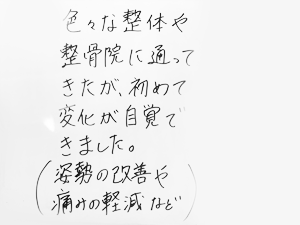 色々な整体や
整骨院に通って
きたが、初めて
変化が自覚で
きました。
(姿勢の改善や
痛みの軽減など)